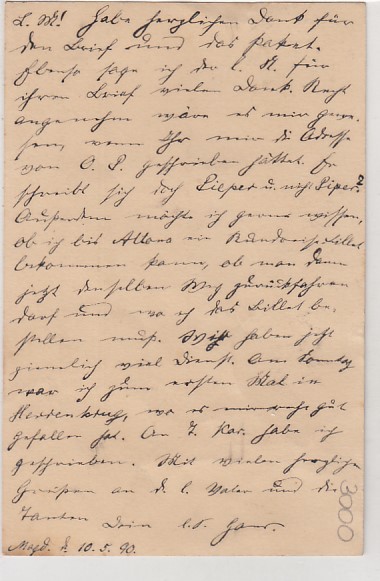 L. M! Habe herzlichen Dank für
den Brief und das Paket.
Ebenso sage ich der l. M. für
ihren Brief vielen Dank. Recht
angenehm wäre es mir gewe-
sen, wenn Ihr mir die Adresse
von O. P. geschrieben hättet. Er
schreibt sich doch Lieper u. nicht Liper?
Außerdem möchte ich gerne wissen,
ob ich bis Altona ein Rundreise-Billet
bekommen kann, ob man dann
jetzt denselben Weg zurückfahren
darf und wo ich das Billet be-
stellen muß. Wir haben jetzt
ziemlich viel Dienst. Am Sonntag
war ich zum ersten Mal in
Herrenkrug, wo es mir sehr gut
gefallen hat. An T. habe ich
geschrieben. Mit vielen herzlichen
Grüßen an d. l. Vater und die
Tanten Dein l. S. Hans.
Magd. d. 10.5.90.
3000